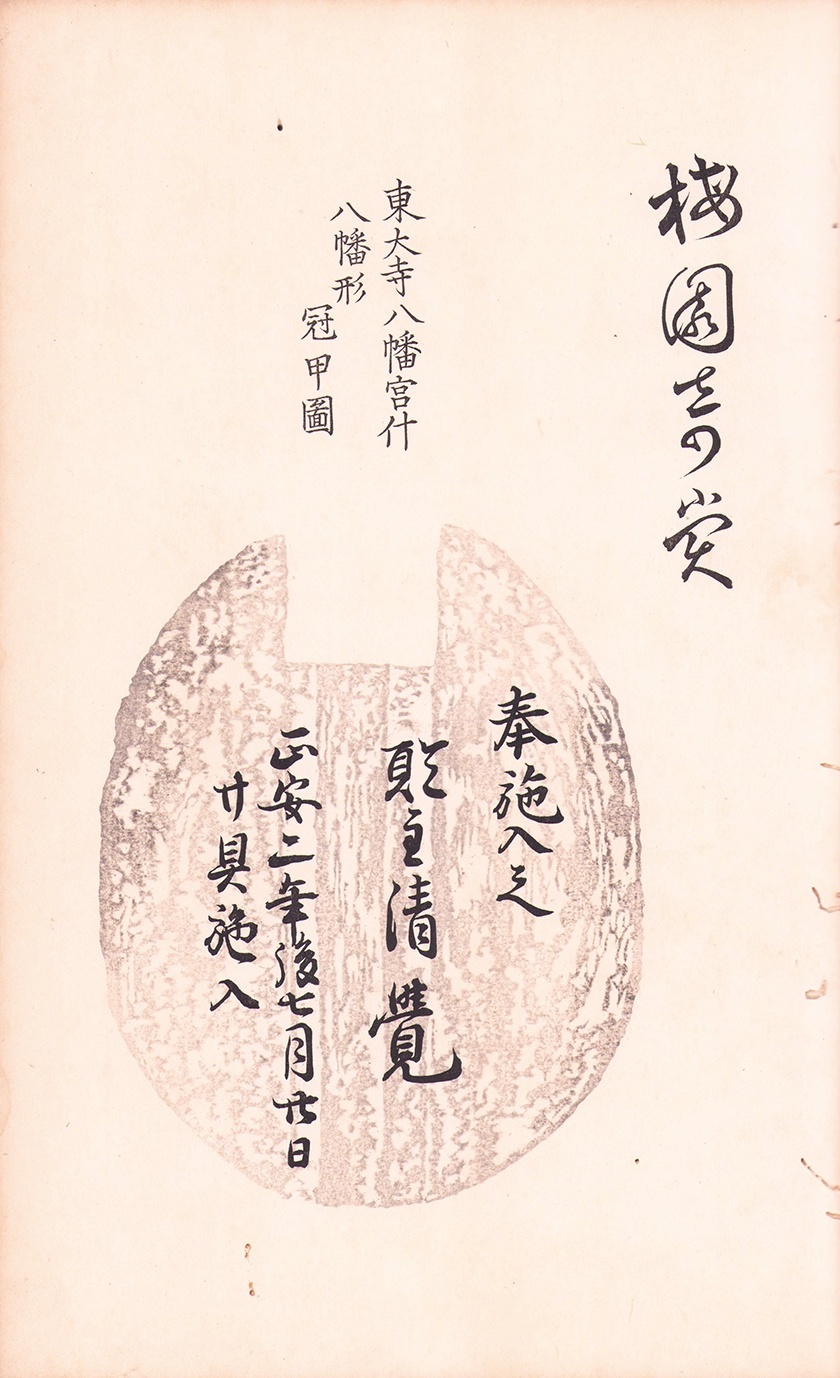 梅園奇賞
東大寺八幡宮什
八幡形
冠甲圖
奉施入之
願主清覺
正安二年後七月廿日
廿具施入